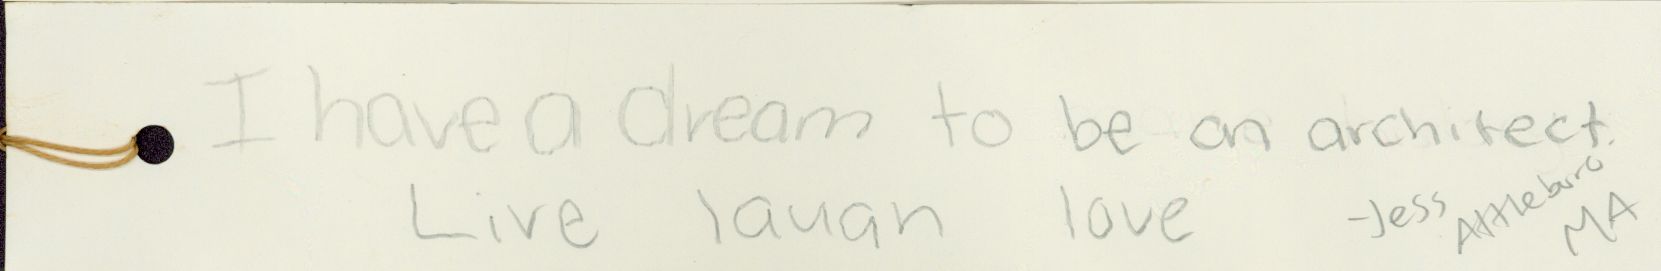 I have a dream to be an architect.
Live laugh love
-Jess
Attleboro
MA